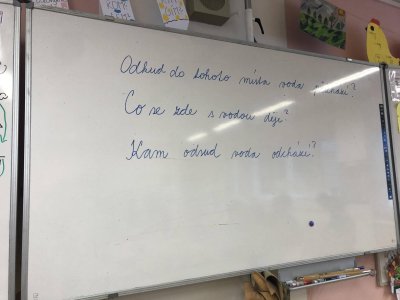 Odkud do tohoto místa voda přichází?
Co se zde s vodou děje?
Kam odsud voda odchází?